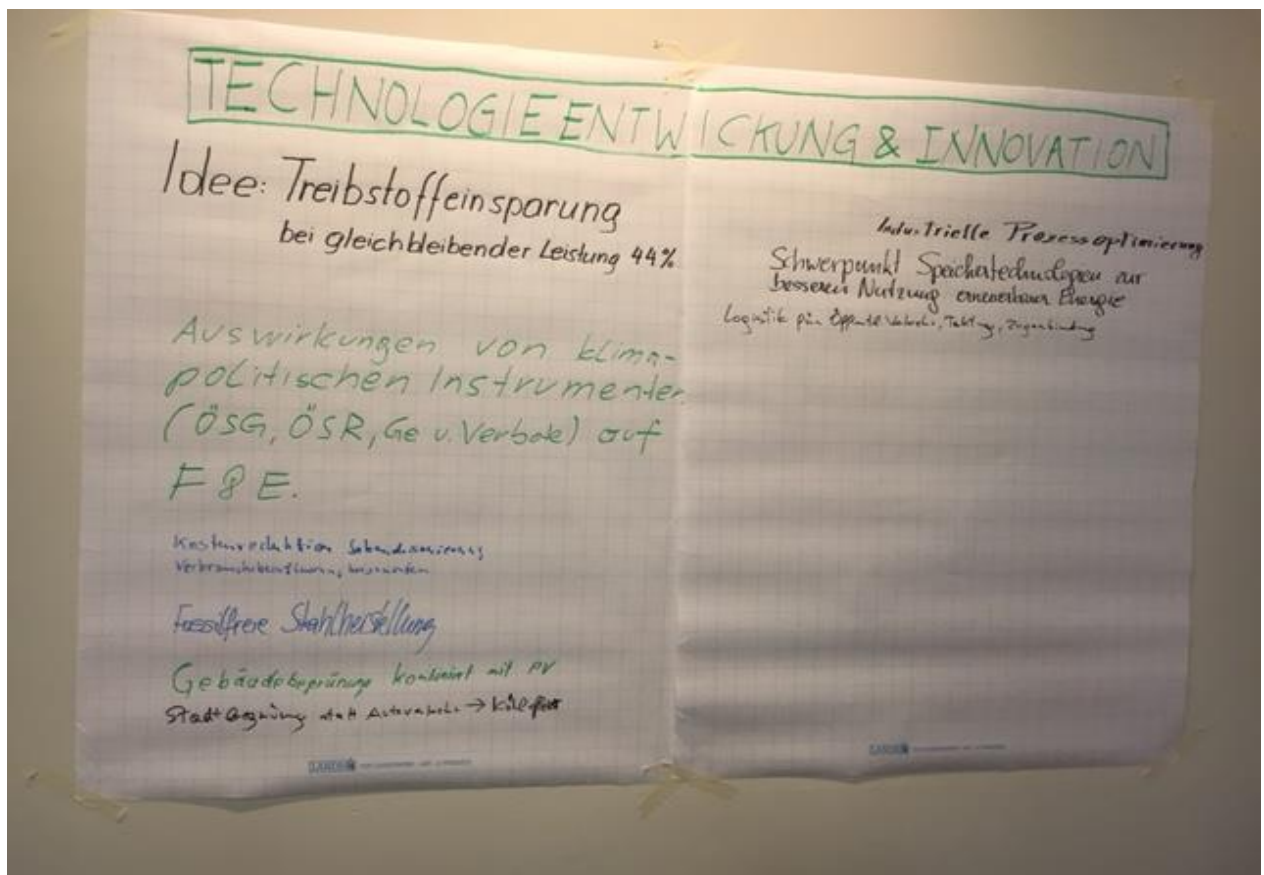 TECHNOLOGIEENTWICKUNG & INNOVATION
Idee: Treibstoffeinsparung
bei gleichbleibender Leistung 44%
Auswirkungen von klima-
politischen Instrumenten
(ÖSG, ÖSR, Ge u. Verbote) auf
F & E.
Kostenreduktion
Fossilfreie Stahlherstellung
Gebäudebegrünung kombiniert mit PV
Stadtbegrünung statt Autoverkehr →
Industrielle Prozessoptimierung
Schwerpunkt Speichertechnologien zur
besseren Nutzung erneuerbarer Energie
Logistik für Öffentl. Verkehr, Taktung,